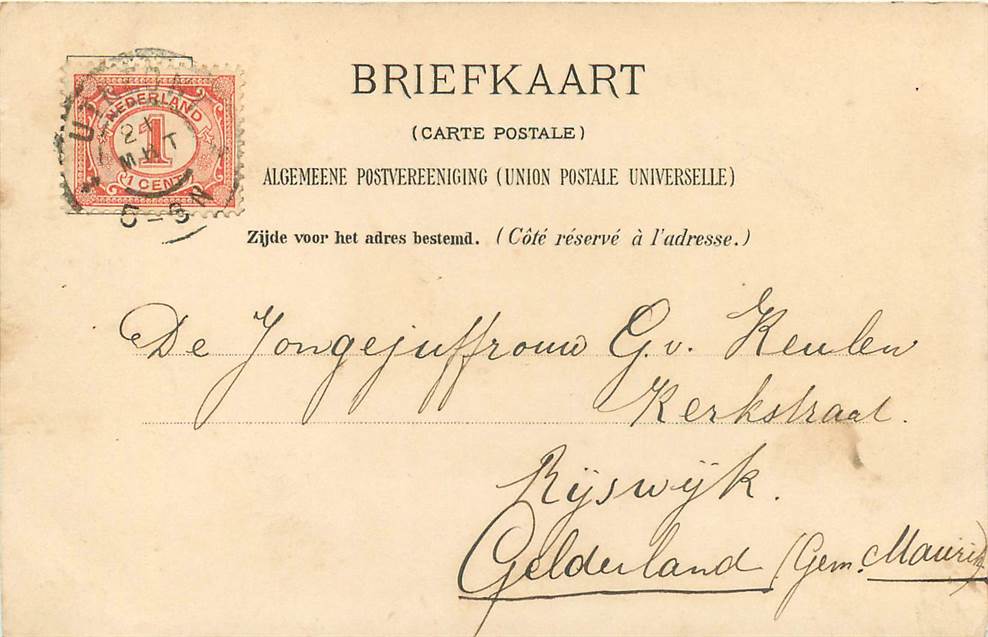 BRIEFKAART
(CARTE POSTALE)
ALGEMEENE POSTVEREENIGING (UNION POSTALE UNIVERSELLE)
Zijde voor het adres bestemd. (Côté réservé à l'adresse.)
NEDERLAND
1
1 CENT
24
MRT
5-8N
De Jongejuffrouw G. v. Keulen
Kerkstraat.
Rijswijk.
Gelderland (Gem. Maurik)